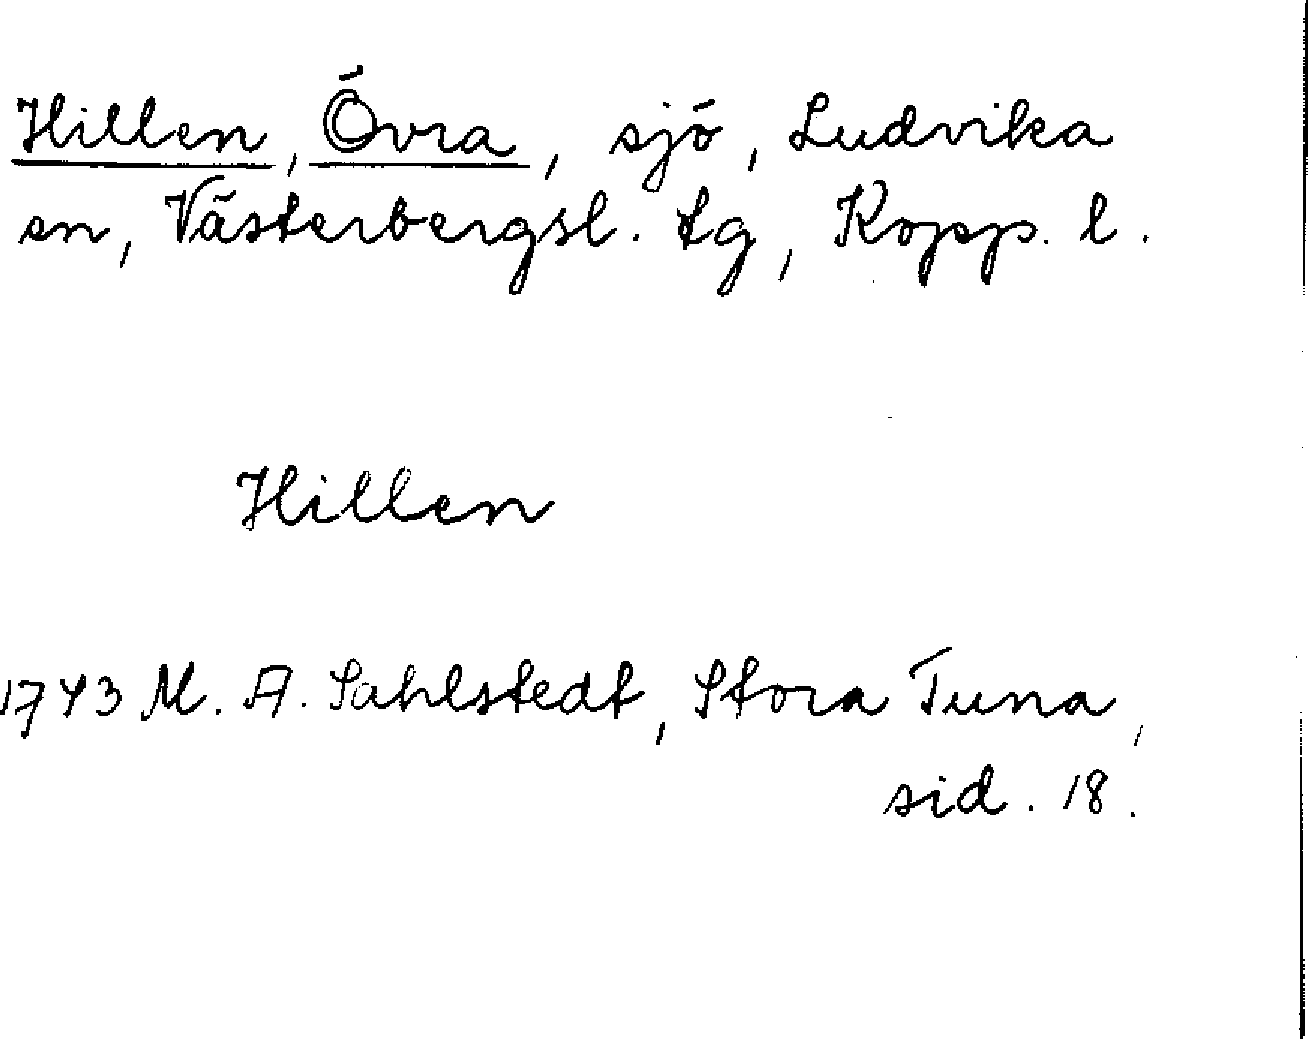 Hillen, Övra, sjö, Ludvika
sn, Västerbergsl. tg, Kopp. l.
Hillen
1743 M. A. Sahlstedt, Stora Tuna,
sid. 18.